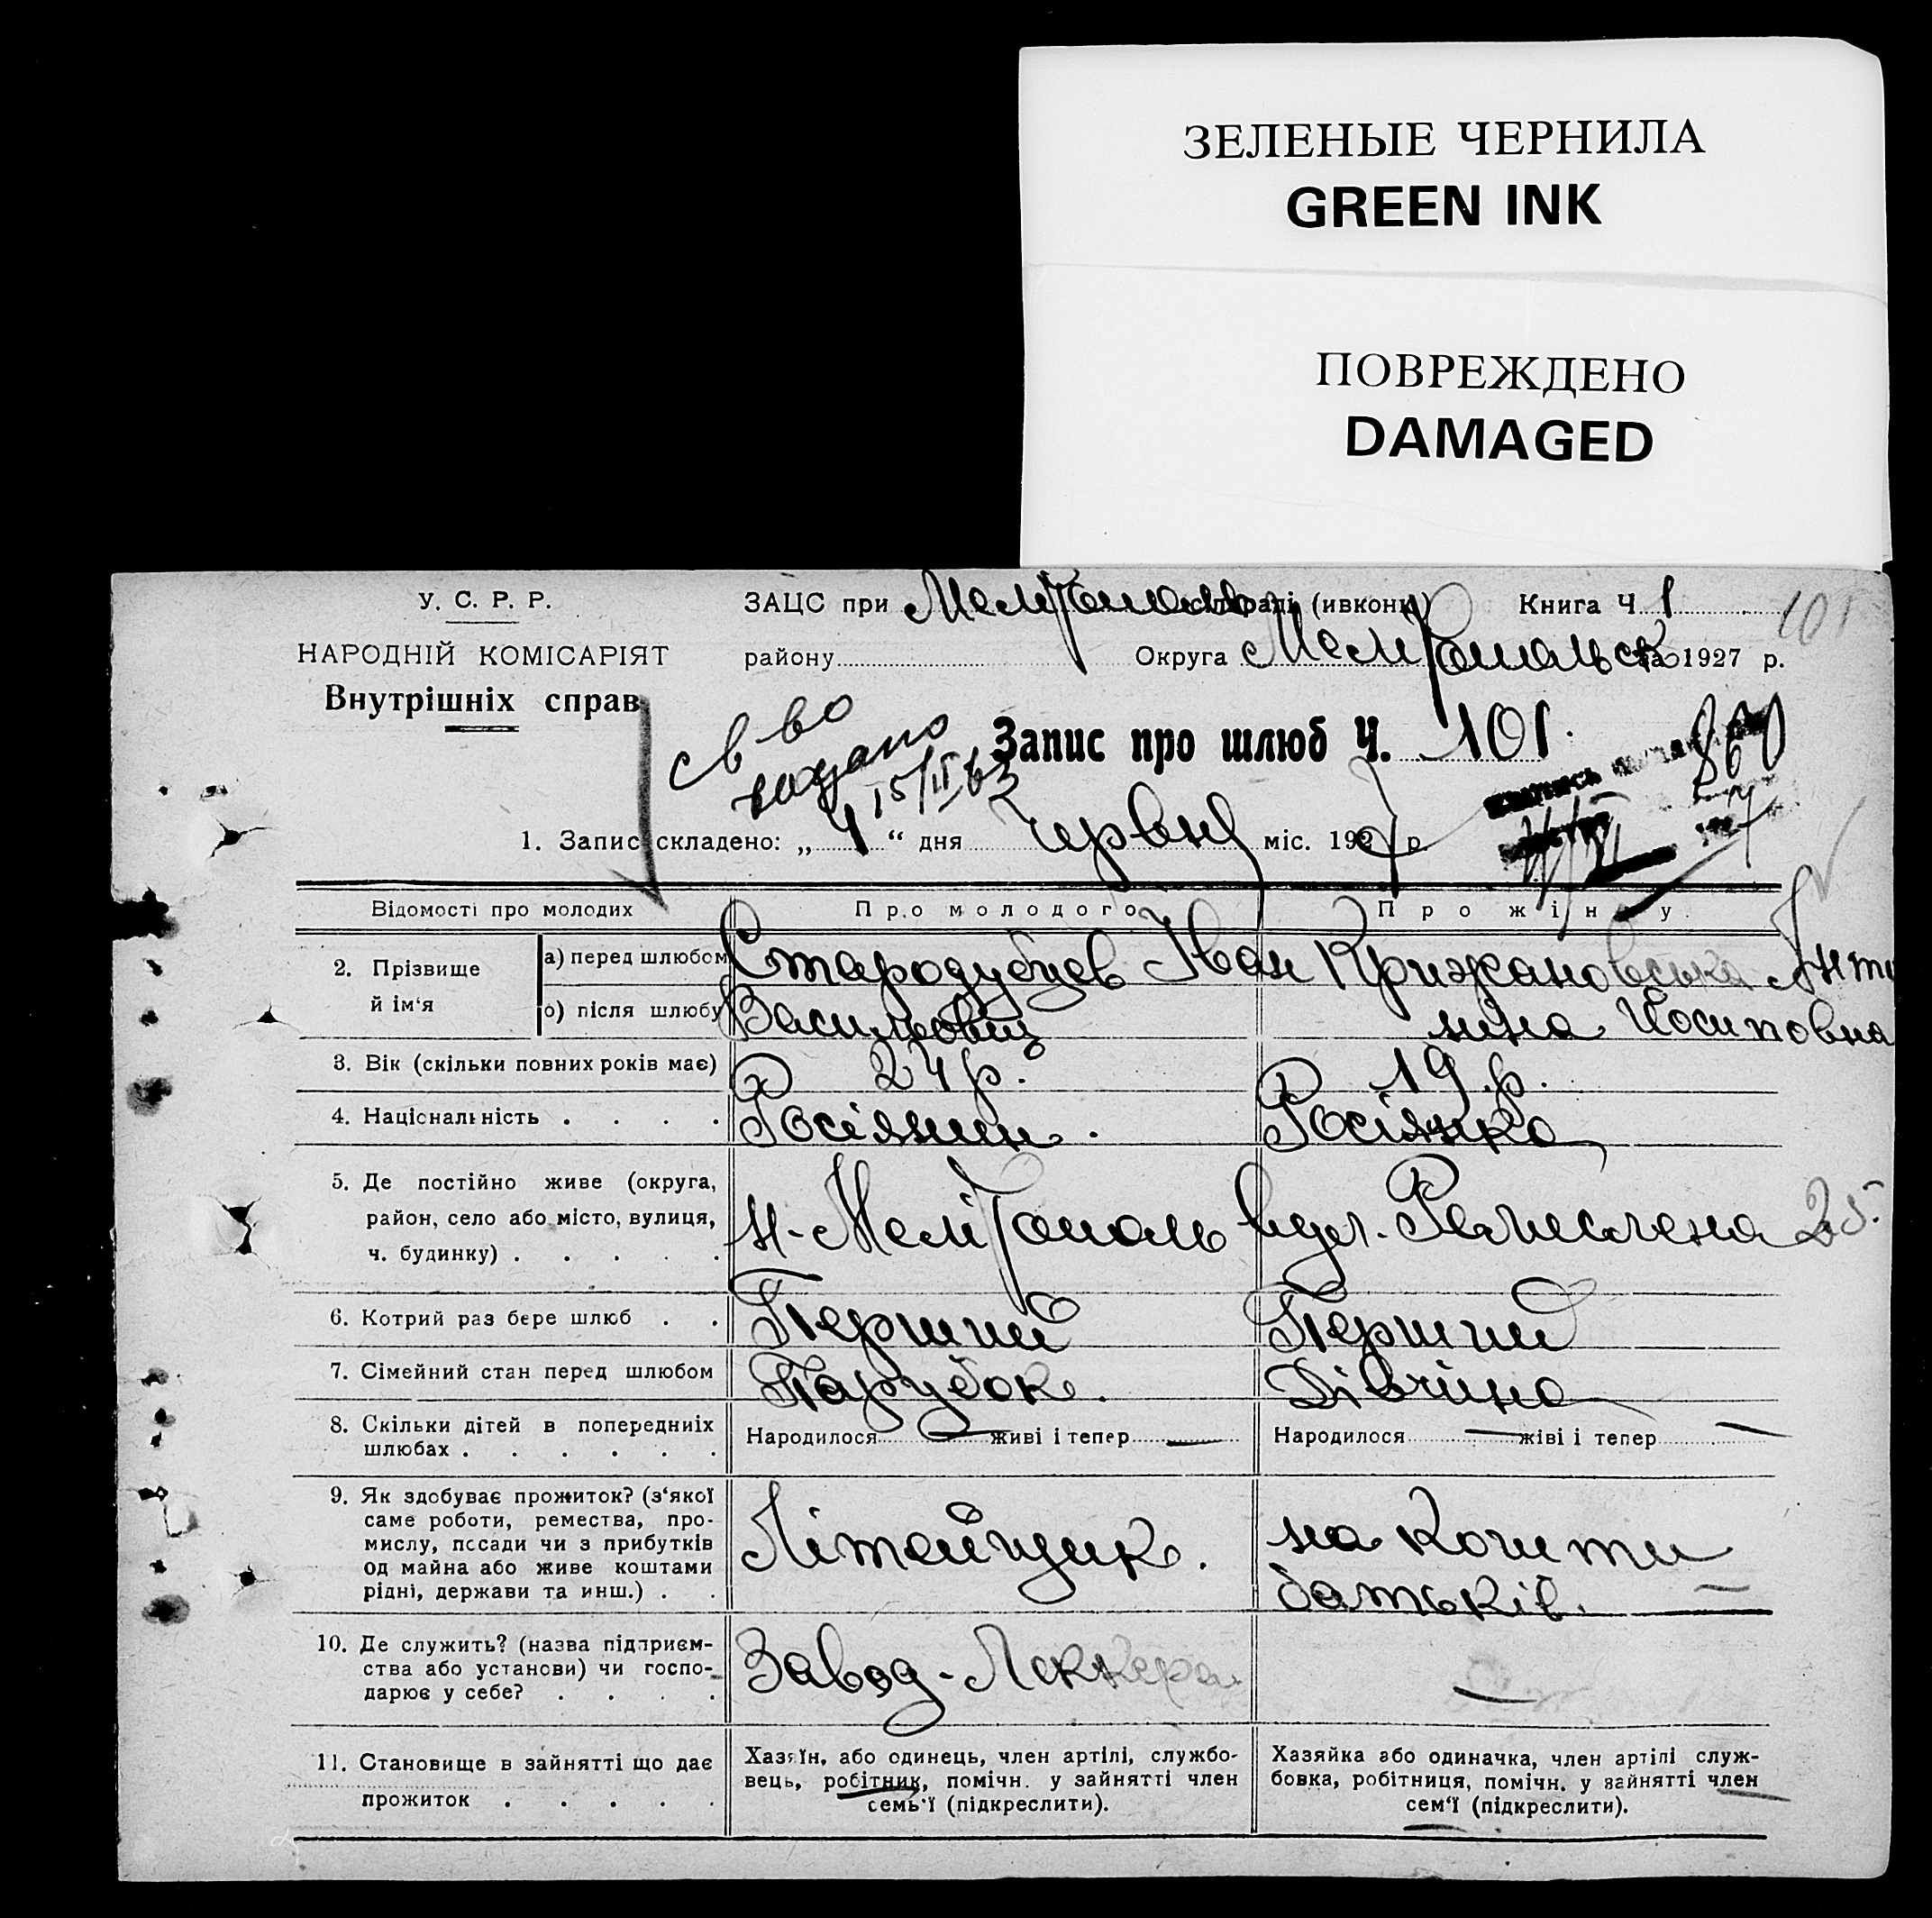 ЗЕЛЕНЫЕ ЧЕРНИЛА
GREEN INK
ПОВРЕЖДЕНО
DAMAGED
У. С. Р. Р.
НАРОДНІЙ КОМІСАРІЯТ
Внутрішніх справ
ЗАЦС при Мелітополь сільраді (ивконк) Книга Ч 1
101
району Округа Мелітопольск за 1927 р.
Запис про шлюб Ч. 101.
860
св во
видано
15/II 63
1. Запис складено: „ 4 “ дня Червня міс. 1927 р.
Відомості про молодих Про молодого Про жінку
2. Прізвище й ім‘я
а) перед шлюбом Стародубцев Іван Крижановська Анто
б) після шлюбу Васильовіч нина Йосиповна
3. Вік (скільки повних років має) 24 р. 19 р.
4. Національність . . . . Росіянин. Росіянка
5. Де постійно живе (округа,
район, село або місто, вулиця,
ч. будинку) . . . . . Н-Мелітополь вул. Ремеслена 25.
6. Котрий раз бере шлюб . . Перший Перший
7. Сімейний стан перед шлюбом Парубок. Дівчина
8. Скільки дітей в попередниіх
шлюбах . . . . . . Народилося — живі і тепер — Народилося — жіві і тепер —
9. Як здобуває прожиток? (з‘якої
саме роботи, ремества, про-
мислу, посади чи з прибутків
од майна або живе коштами
рідні, держави та инш.) . .
Літейщик. на кошти
батьків.
10. Де служить? (назва підприєм-
ства або установи) чи госпо-
дарює у себе? . . . .
Завод - Леккера —
11. Становище в зайнятті що дає
прожиток . . . . .
Хазяїн, або одинець, член артілі, службо-
вець, робітник, помічн. у зайнятті член
семь‘ї (підкреслити).
Хазяйка або одиначка, член артілі служ-
бовка, робітниця, помічн. у зайнятті член
сем‘ї (підкреслити).